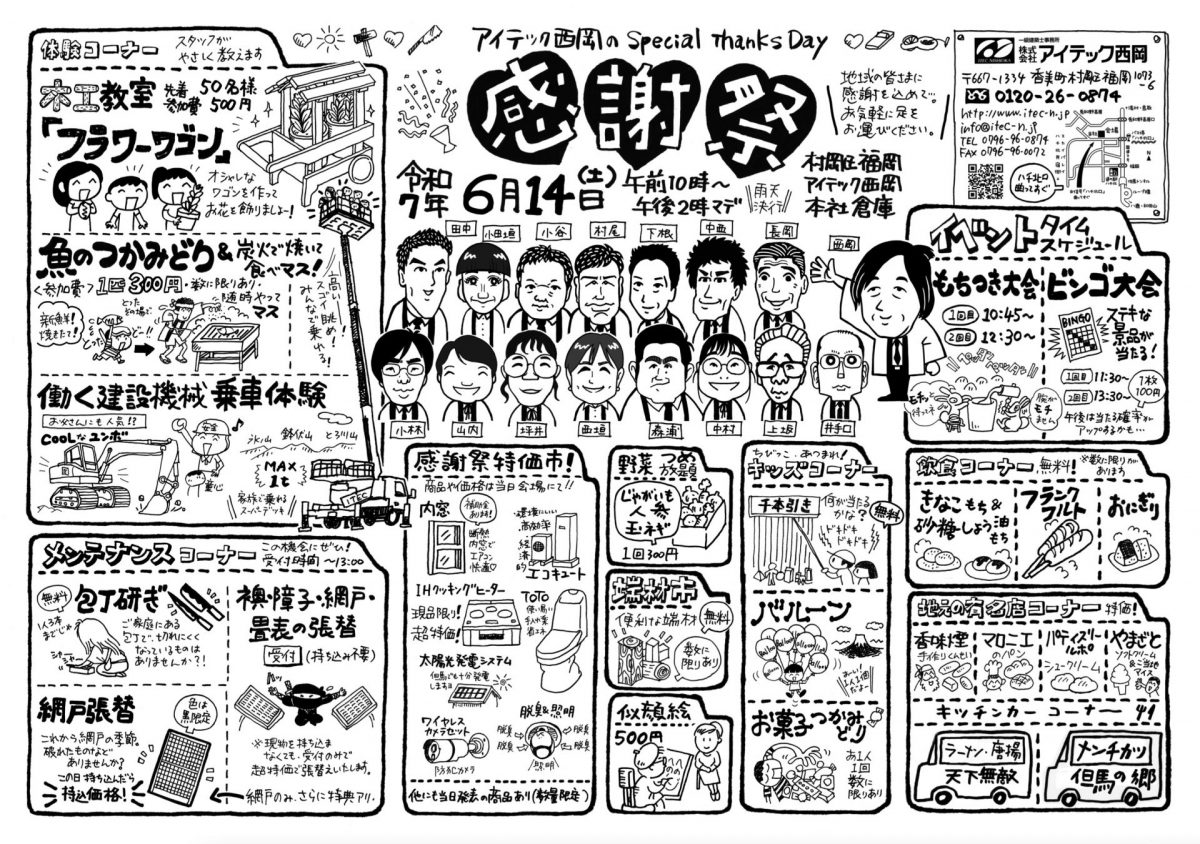 アイテック西岡の Special Thanks Day
感謝祭
地域の皆さまに
感謝を込めて。
お気軽に足を
お運びください。
令和
7年
6月14日(土)
午前10時〜
午後2時マデ
雨天
決行
村岡区福岡
アイテック西岡
本社倉庫
一級建築士事務所
ITEC NISHIOKA
株式会社 アイテック西岡
〒667-1334 香美町村岡区福岡1073-6
0120-26-0874
http://www.itec-n.jp
info@itec-n.jp
TEL 0796-96-0874
FAX 0796-96-0072
ハチ北口
曲ってすぐ
体験コーナー
スタッフが
やさしく教えます
木工教室
先着 50名様
参加費 500円
「フラワーワゴン」
オシャレな
ワゴンを作って
お花を飾りましょー!
魚のつかみどり&炭火で焼いて
食べマス!
<参加費>1匹300円・数に限りあり・
随時やって
マス
新鮮!
焼きたて!
とったどー!!
高い!
スゴイ眺め!
みんなで乗れる!
働く建設機械 乗車体験
お父さんにも人気!?
COOLなユンボ
安全
童心
氷ノ山
鉢伏山
とろりん山
MAX
1t
家族で乗れる
スーパーデッキ
ITEC
田中
小田垣
小谷
村尾
下根
中西
長岡
西岡
小林
山内
坪井
西垣
森浦
中村
上坂
井手口
イベント タイム
スケジュール
もちつき大会
1回目 10:45〜
2回目 12:30〜
ペッタン
ペッタン
ビンゴ大会
BINGO
ステキな
景品が
当たる!
1回目 11:30〜
2回目 13:30〜
1枚
100円
午後は当たる確率が
アップするかも…
メンテナンスコーナー
この機会にぜひ!
受付時間 〜13:00
無料
包丁研ぎ
1人3本
までじゃ
シャー
シャー
ご家庭にある
包丁で、切れにくく
なっているものは
ありませんか?!
網戸張替
色は
黒限定
これから網戸の季節。
破れたものなど
ありませんか?
この日持ち込んだら
持込価格!
襖・障子・網戸・
畳表の張替
受付 (持ち込み不要)
※現物を持ち込ま
なくても、受付のみで
超特価で張替えいたします。
網戸のみ、さらに特典アリ。
感謝祭特価市!
商品や価格は当日会場にて!!
内窓
補助金
有ります!
断熱
内窓で
エアコン
快適♡
・環境にいい
・高効率
・経済的
エコキュート
IHクッキングヒーター
現品限り!
超特価!
TOTO
使い易い
手入れ楽
省エネ
太陽光発電システム
但馬でも十分発電
します!!
ワイヤレス
カメラセット
防犯カメラ
脱臭&照明
脱臭
脱臭
脱臭
脱臭
照明
他にも当日発表の商品あり(数量限定)
野菜つめ
放題
じゃがいも
人参
玉ネギ
1回300円
端材市
便利な端材
無料
数に
限りあり
似顔絵
500円
ちびっこ、あつまれ!
キッズコーナー
千本引き
何が当たる
かな?
無料
ドキドキ
ドキドキ
バルーン
お菓子つかみ
どり
お1人
1回
数に
限りあり
飲食コーナー 無料!
※数に限りが
あります
きなこもち&
砂糖しょう油
もち
フランク
フルト
おにぎり
地元の有名店コーナー 特価!
香味煙
手作りくんせい
マロニエ
のパン
パティズリー
ルポ
シュークリーム
やまざと
ソフトクリーム
&ご当地
アイス
キッチンカーコーナー
ラーメン・唐揚
天下無敵
メンチカツ
但馬の郷